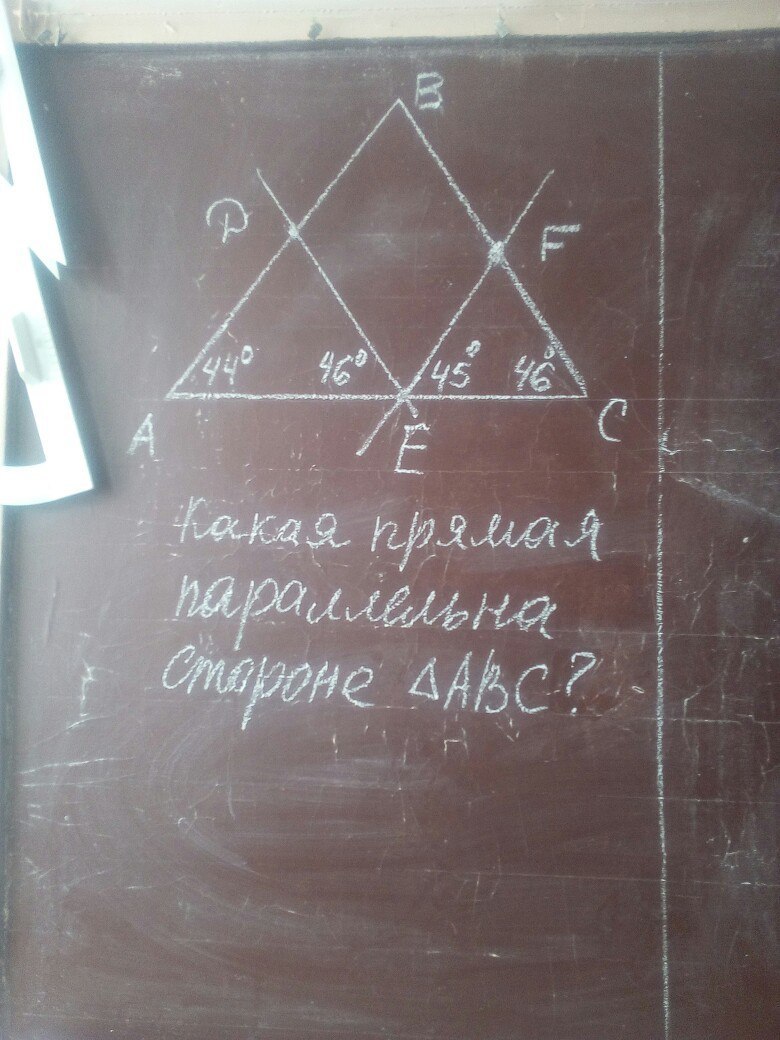 B
D
F
44° 46° 45° 46°
A E C
Какая прямая
параллельна
стороне ΔABC?